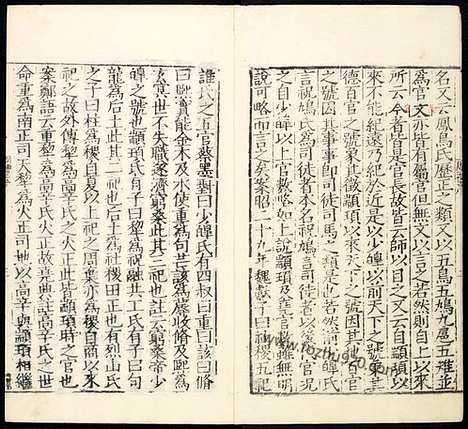 名又云鳳鳥氏歷正之類又以五鳥五鳩九扈五雉並
爲官文亦皆有屬官但無文以言之若然則自上以
所云今者皆是官長故皆云師以目之又云自顓頊以
來不能紀遠乃紀於近是以少皥以前天下之號象其
德百官之號象其徵顓頊以來天下之號因其地百官
之號因其事事即司徒司馬之類是也若然前少皥
言祝鳩氏爲司徒者本名祝鳩言司徒者以後代官況
之自少皥以上官數略如上說顓頊及堯官數雖無明
說可略而言之矣案昭二十九年魏獻子曰社稷五祀
誰氏之五官蔡墨對曰少皥氏有四叔曰重曰該曰脩
曰熙實能金木及水使重爲句芒該爲蓐收脩及熙爲
玄冥世不失職遂濟窮桑此其三祀也註云窮桑帝少
皥之號也顓頊氏有子曰犂爲祝融共工氏有子曰句
龍爲后土此其二祀也后土爲社稷田正也有烈山氏
之子曰柱爲稷自夏以上祀之周棄亦爲稷自商以來
祀之故外傳犂爲高辛氏之火正此皆顓頊時之官也
案鄭語云重犂爲高辛氏火正故堯典註高辛氏之世
命重爲南正司天犂爲火正司地以高辛與顓頊相繼